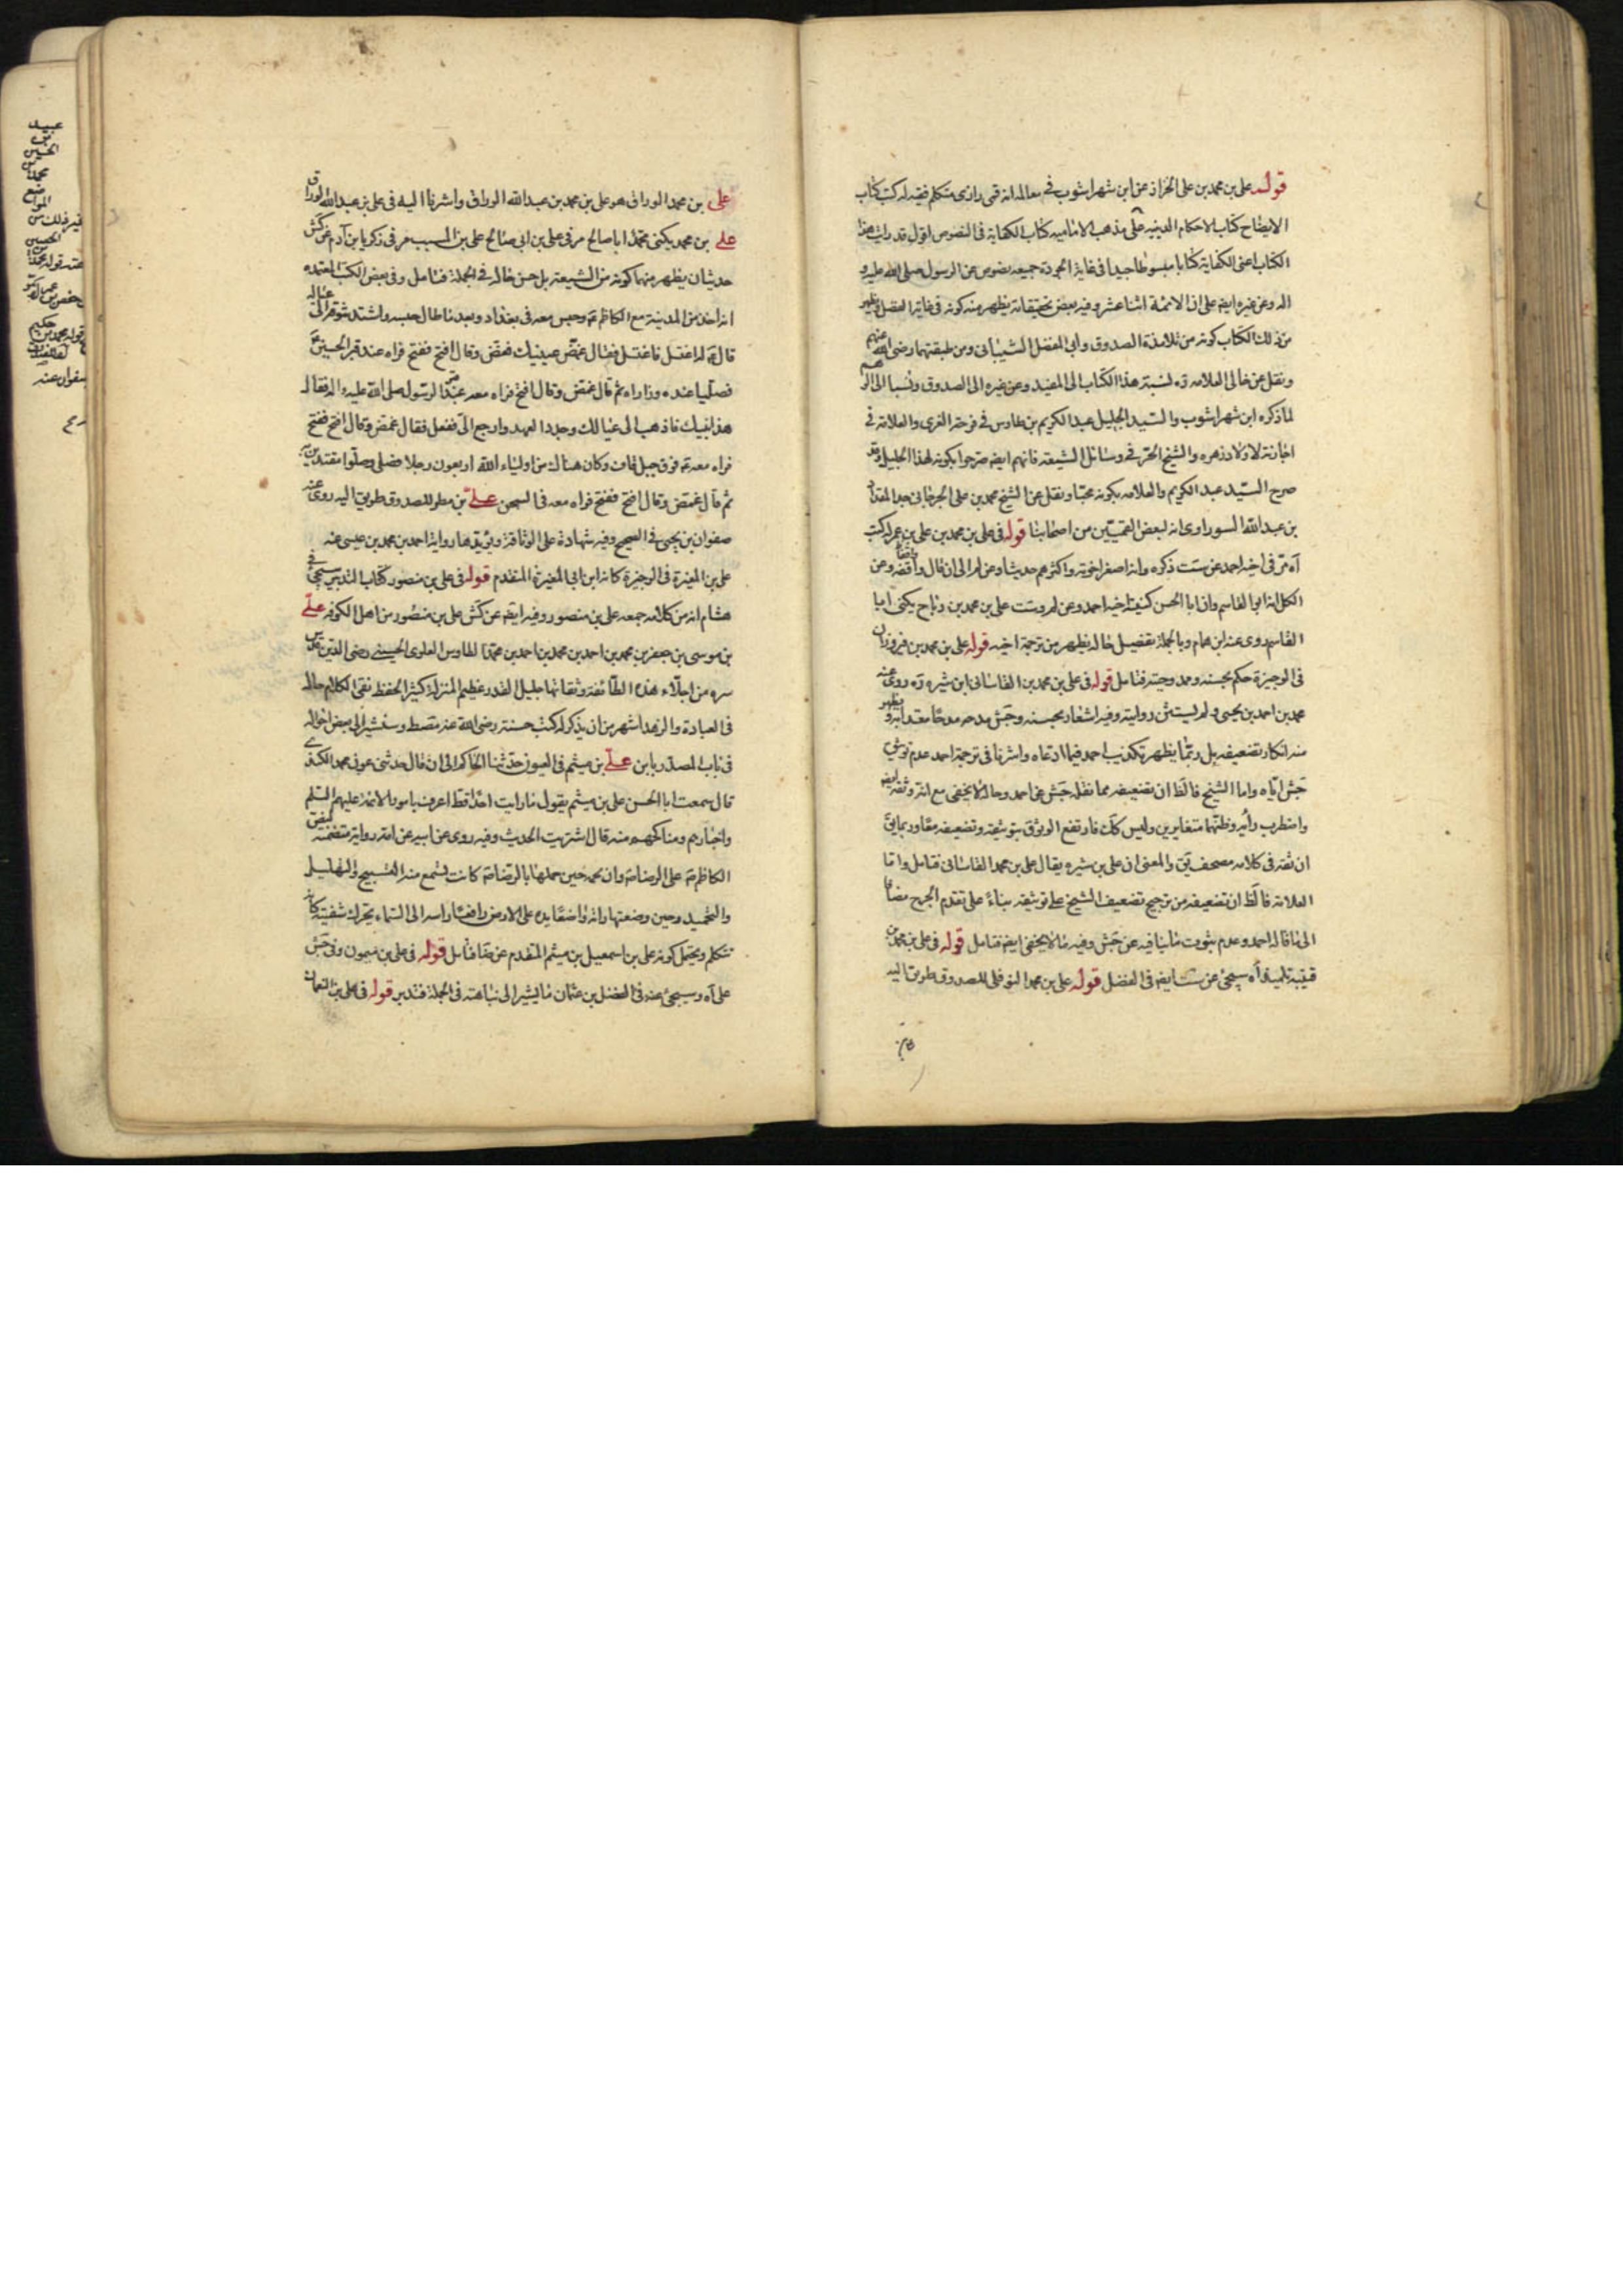 قوله علي بن محمد بن علي الخزاز عن ابن شهراشوب في معالمه انه قمي رازي متكلم فقيه له كتب كتاب
الايضاح كتاب الاحكام الدينيه على مذهب الاماميه كتاب الكفاية في النصوص اقول قد رايت هذا
الكتاب اعني الكفاية كتابا مبسوطا جيدا في غاية الجودة جميعه نصوص عن الرسول صلى الله عليه و
اله وعن غيره ايضا على ان الائمة اثنا عشر وفيه بعض تحقيقاته يظهر منه كونه في غاية الفضل ويظهر
من ذلك الكتاب كونه من تلامذة الصدوق وابي المفضل الشيباني ومن طبقتهما رضي الله عنهم
ونقل عن خالي العلامه ره نسبة هذا الكتاب الى المفيد وعن غيره الى الصدوق ونسبا الى الوهم
لما ذكره ابن شهراشوب والسيد الجليل عبد الكريم بن طاوس في فرحة الغري والعلامة في
اجازته لاولاد زهره والشيخ الحر في وسائل الشيعة فانهم ايضا صرحوا بكونه لهذا الجليل وقد
صرح السيد عبد الكريم والعلامه بكونه ونقل عن الشيخ محمد بن علي الجرجاني جد المقداد
بن عبد الله السوراوي انه لبعض القميين من اصحابنا قوله في علي بن محمد بن علي بن عمر له كتب
آه مر في اخيه احمد عن ست ذكره وانه اصغر اخوته واكثرهم حديثا وعن لم الى ان قال واقفه وعن
الكل انه ابو القاسم وان ابا الحسن كنية اخيه احمد وعن لم وست علي بن محمد بن رباح يكنى ابا
القاسم روى عنه ابن همام وبالجملة تفصيل حاله يظهر من ترجمة اخيه قوله علي بن محمد بن فيروزان
في الوجيزة حكم بحسنه وممدوحيته فتامل قوله في علي بن محمد بن القاساني ابن شيره ره روى عنه
محمد بن احمد بن يحيى ولم يستثن روايته وفيه اشعار بحسنه وجش مدحه مدحا معتدا به ويظهر
منه انكار تضعيفه بل ربما يظهر تكذيب احمد فيما ادعاه واشرنا في ترجمة احمد عدم توثيق
جش اياه واما الشيخ فالظ ان تضعيفه مما نقله جش عن احمد وحاله لا يخفى مع انه وثقه ايضا
واضطرب رأيه وظنهما متغايرين وليس كك فارتفع الوثوق بتوثيقه وتضعيفه معا وربما يق
ان ثقه في كلامه مصحف يق والمعنى ان علي بن شيره يقال علي بن محمد القاساني فتامل واما
العلامة فالظ ان تضعيفه من ترجيح تضعيف الشيخ على توثيقه بناء على تقدم الجرح مضافا
الى ما قاله احمد وعدم ثبوت ما ينافيه عن جش وفيه ما لا يخفى ايضا فتامل قوله في علي بن محمد بن
قتيبة تلميذ آه سيجئ عن ست ايضا في الفضل قوله علي بن محمد النوفلي للصدوق طريق اليه
علي بن محمد الوراق هو علي بن محمد بن عبد الله الوراق واشرنا اليه في علي بن عبد الله الوراق
علي بن محمد يكنى محمد ابا صالح مر في علي بن ابي صالح علي بن المسيب مر في زكريا بن آدم عن كش
حديثان يظهر منهما كونه من الشيعة بل حسن حاله في الجملة فتامل وفي بعض الكتب المعتمده
انه اخذ من المدينة مع الكاظم ع وحبس معه في بغداد وبعد ما طال حبسه واشتد شوقه الى عياله
قال ع له اغتسل فاغتسل فقال غمض عينيك فغمض وقال افتح ففتح فراه عند قبر الحسين ع
فصليا عنده وزاراه ثم قال غمض وقال افتح فراه معه عند قبر الرسول صلى الله عليه واله فقال
هذا بيتك فاذهب الى عيالك وجدد العهد وارجع الي ففعل فقال غمض وقال افتح ففتح
فراه معه ع فوق جبل قاف وكان هناك من اولياء الله اربعون رجلا فصلى وصلوا مقتدين به
ثم قال غمض وقال افتح ففتح فراه معه في السجن علي بن مطر للصدوق طريق اليه روى عنه
صفوان بن يحيى في الصحيح وفيه شهادة على الوثاقة ويؤيدها رواية احمد بن محمد بن عيسى عنه
علي بن المغيرة في الوجيزة كانه ابن ابي المغيرة المتقدم قوله في علي بن منصور كتاب التدبير سيجئ في
هشام انه من كلامه جمعه علي بن منصور وفيه ايضا عن كش علي بن منصور من اهل الكوفه علي
بن موسى بن جعفر بن محمد بن احمد بن محمد بن احمد بن محمد الطاوس العلوي الحسيني رضي الدين قدس
سره من اجلاء هذه الطائفة وثقاتها جليل القدر عظيم المنزلة كثير الحفظ نقي الكلام حاله
في العبادة والزهد اشهر من ان يذكر له كتب حسنة رضي الله عنه وسنشير الى بعض احواله
في باب المصدر بابن علي بن ميثم في العيون حدثنا الحاكم الى ان قال حدثني عون بن محمد الكندي
قال سمعت ابا الحسن علي بن ميثم يقول ما رايت احدا قط اعرف بامور الائمة عليهم السلم
واخبارهم ومناكحهم منه قال اشتريت الحديث وفيه روى عن ابيه عن امه رواية متضمنة لنص
الكاظم ع على الرضا ع وان نجمه حين حملها بالرضا ع كانت تسمع منه التسبيح والتهليل
والتحميد وحين وضعتها رأته واضعا يده على الارض رافعا راسه الى السماء يحرك شفتيه كانه
تتكلم ويحتمل كونه علي بن اسمعيل بن ميثم المتقدم عن فتامل قوله في علي بن ميمون وفي جش
علي آه وسيجئ عنه في المفضل بن عثمان ما يشير الى نباهته في الجملة فتدبر قوله في علي بن النعمان
عبيد
بن
الحسين
المواضع
غير ذلك من
الحسين
عنه قوله محمد
حكيم
قوله محمد بن
صفوان عنه